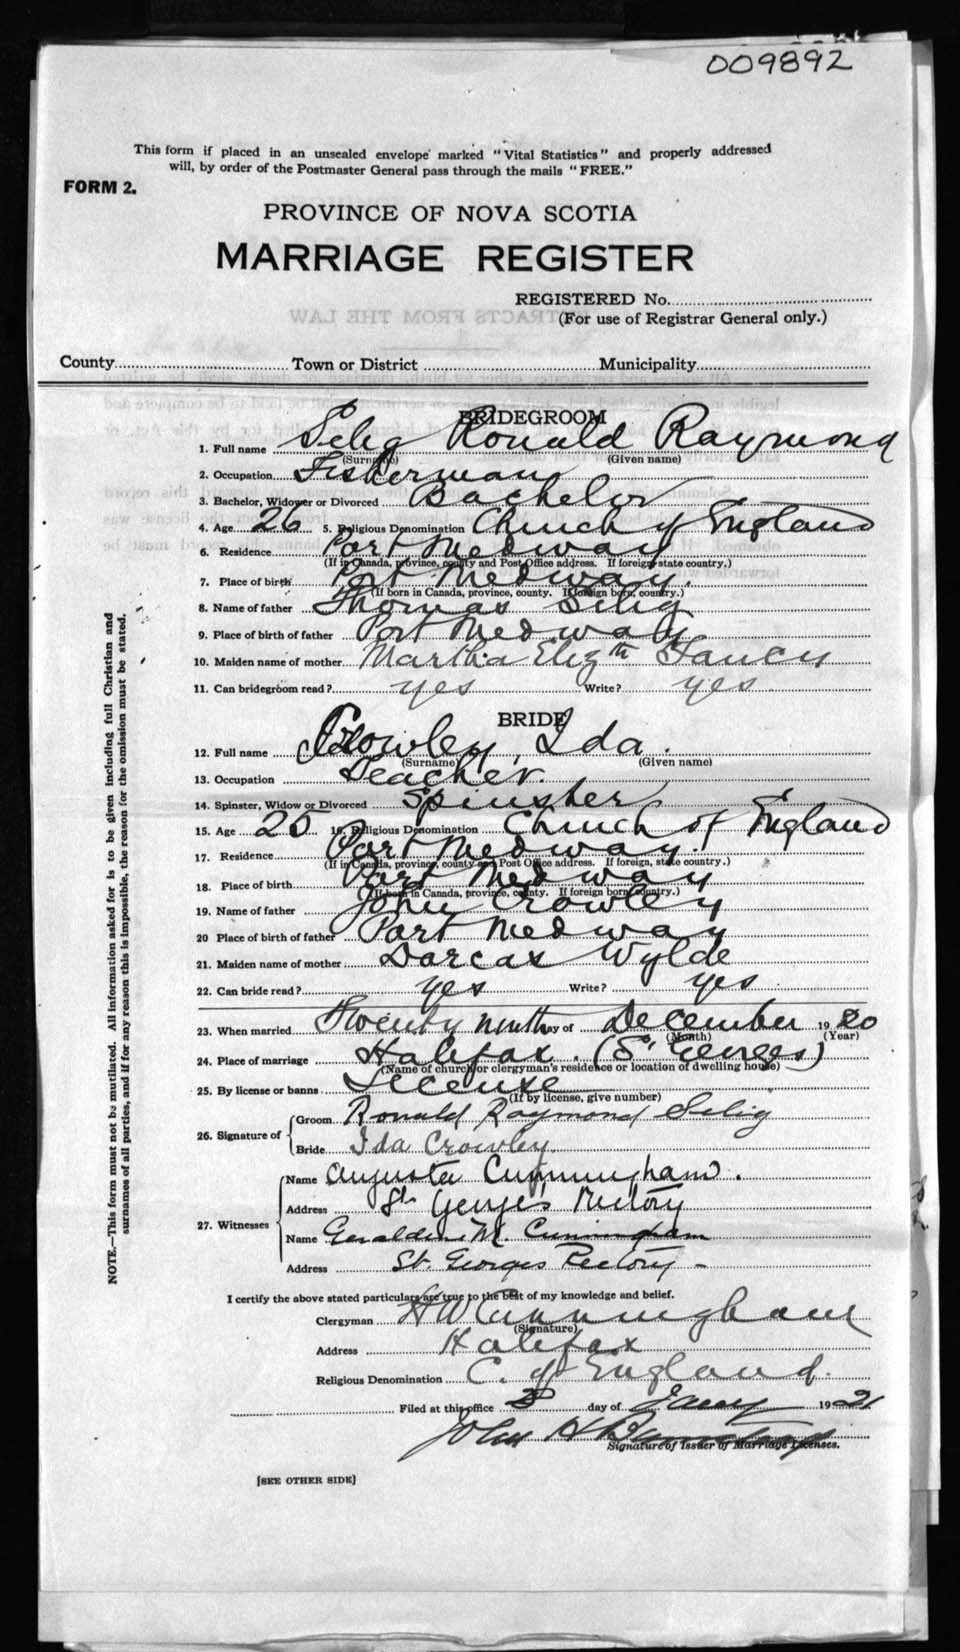 009892
This form if placed in an unsealed envelope marked "Vital Statistics" and properly addressed
will, by order of the Postmaster General pass through the mails "FREE."
FORM 2.
PROVINCE OF NOVA SCOTIA
MARRIAGE REGISTER
REGISTERED No.
(For use of Registrar General only.)
County Town or District Municipality
BRIDEGROOM
1. Full name Selig Ronald Raymond
(Surname) (Given name)
2. Occupation Fisherman
3. Bachelor, Widower or Divorced Bachelor
4. Age 26 5. Religious Denomination Church of England
6. Residence Port Medway
(If in Canada, province, county and Post Office address. If foreign state country.)
7. Place of birth Port Medway.
(If born in Canada, province, county. If foreign born, country.)
8. Name of father Thomas Selig
9. Place of birth of father Port Medway
10. Maiden name of mother Martha Elizth Fancy
11. Can bridegroom read? yes Write? yes
BRIDE
12. Full name Crowley, Ida.
(Surname) (Given name)
13. Occupation Teacher.
14. Spinster, Widow or Divorced Spinster
15. Age 25 16. Religious Denomination Church of England
17. Residence Port Medway.
(If in Canada, province, county and Post Office address. If foreign, state country.)
18. Place of birth Port Medway
(If born in Canada, province, county. If foreign born, country.)
19. Name of father John Crowley
20 Place of birth of father Port Medway
21. Maiden name of mother Dorcas Wylde
22. Can bride read? yes Write? yes
23. When married Twenty ninth day of December 1920
(Month) (Year)
24. Place of marriage Halifax. (St Georges)
(Name of church or clergyman's residence or location of dwelling house)
25. By license or banns License
(If by license, give number)
26. Signature of Groom Ronald Raymond Selig
Bride Ida Crowley.
27. Witnesses Name Augusta Cunningham.
Address St. George's Rectory
Name Geraldine M. Cunningham
Address St. Georges Rectory -
I certify the above stated particulars are true to the best of my knowledge and belief.
Clergyman H W Cunningham
(Signature)
Address Halifax
Religious Denomination C. of England.
Filed at this office 3 day of Jany 1921
John H
Signature of Issuer of Marriage Licenses.
[SEE OTHER SIDE]
NOTE.—This form must not be mutilated. All information asked for is to be given including full Christian and
surnames of all parties, and if for any reason this is impossible, the reason for the omission must be stated.